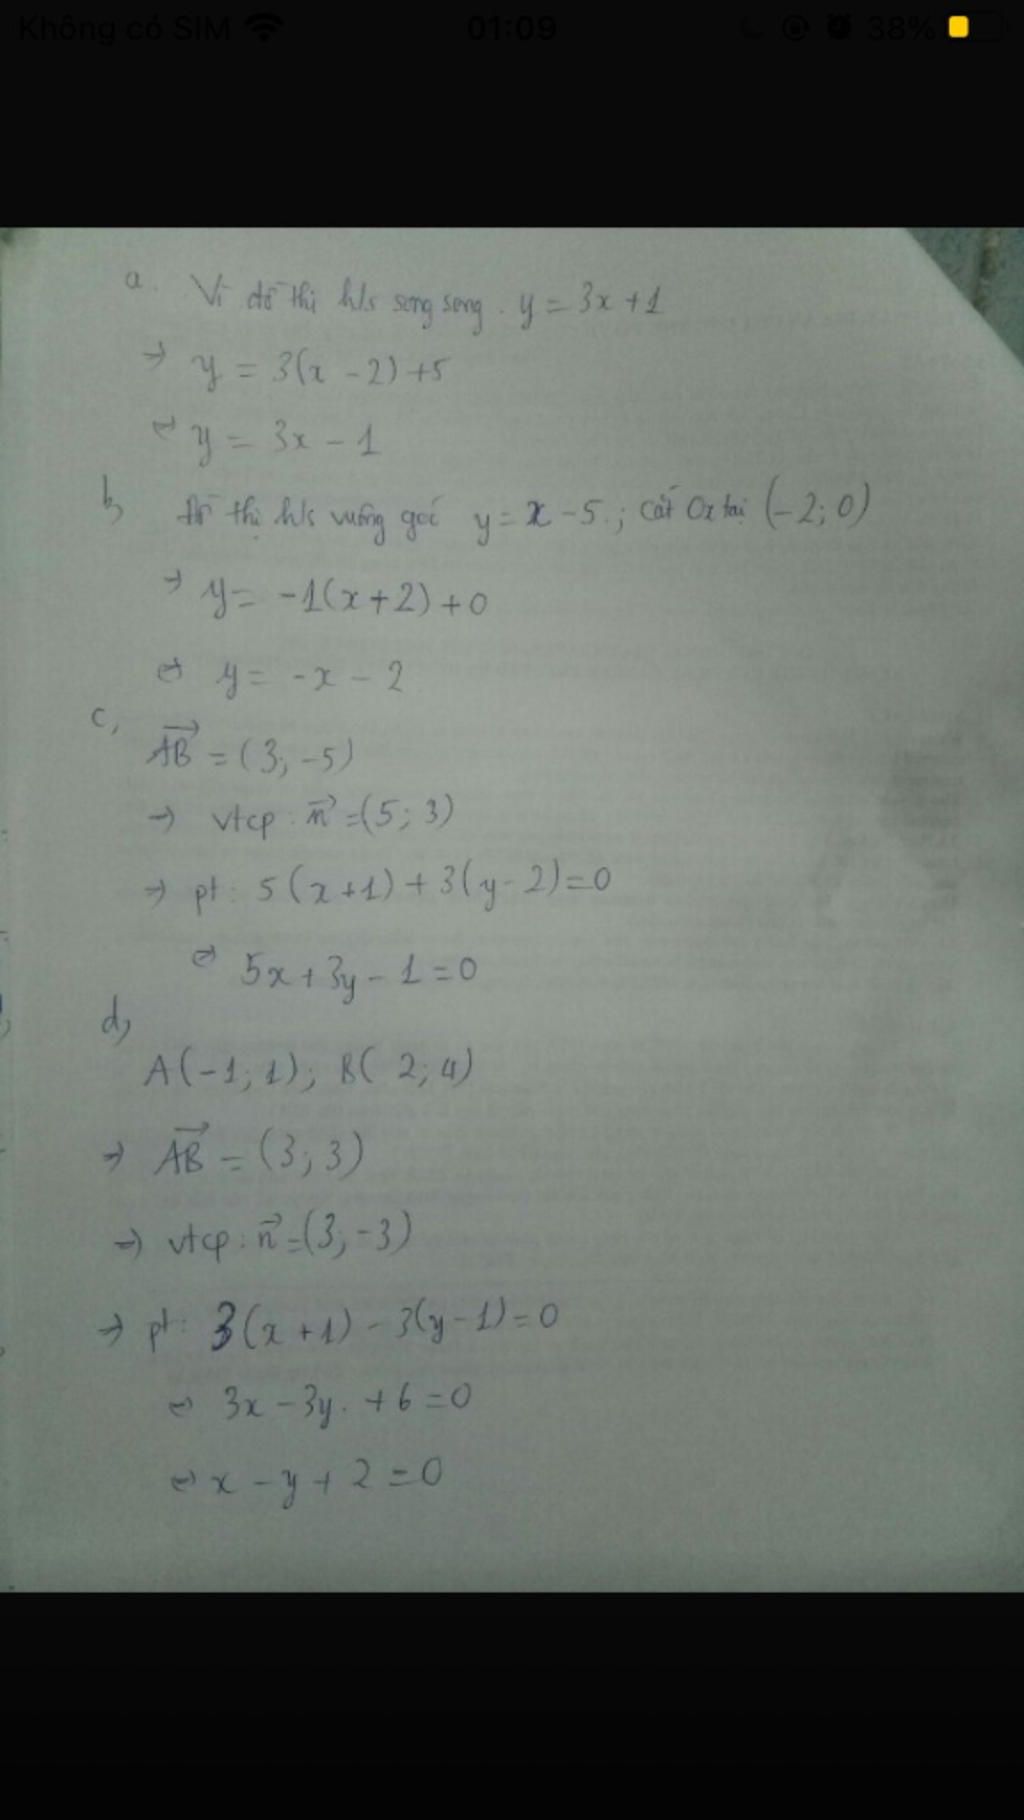 Không có SIM 01:09 38%
a. Vì đồ thị h/s song song. y = 3x + 1
⇒ y = 3(x - 2) + 5
⇔ y = 3x - 1
b, Đồ thị h/s vuông góc y = x - 5.; cắt Ox tại (-2; 0)
⇒ y = -1(x + 2) + 0
⇔ y = -x - 2
c, AB = (3; -5)
→ vtcp: n = (5; 3)
→ pt: 5(x+1) + 3(y-2) = 0
⇔ 5x + 3y - 1 = 0
d, A(-1; 1); B(2; 4)
⇒ AB = (3; 3)
⇒ vtcp: n = (3; -3)
⇒ pt: 3(x+1) - 3(y-1) = 0
⇔ 3x - 3y. + 6 = 0
⇔ x - y + 2 = 0